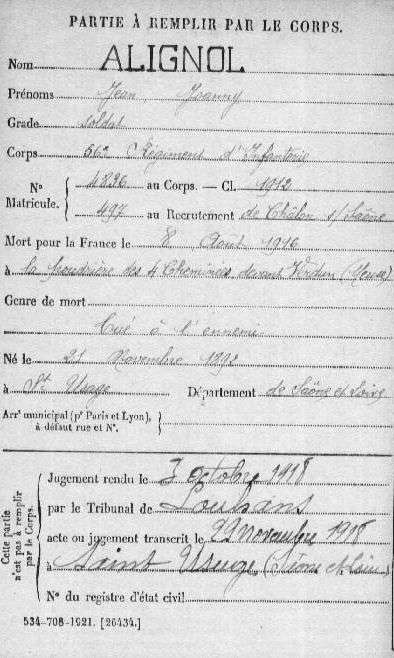 PARTIE À REMPLIR PAR LE CORPS.
Nom ALIGNOL
Prénoms Jean, Joanny
Grade soldat
Corps Régiment d'Infanterie
N° Matricule. 4836 au Corps. — Cl. 1912
497 au Recrutement de Châlon s/Saône
Mort pour la France le 8 Août 1916
à la Poudrière des 4 Cheminées devant Verdun (Meuse)
Genre de mort
Tué à l'ennemi
Né le Novembre 1892
à St Usage Département de Saône et Loire
Arrt municipal (pr Paris et Lyon),
à défaut rue et N°.
Cette partie
n'est pas à remplir
par le Corps.
Jugement rendu le 3 octobre 1918
par le Tribunal de Louhans
acte ou jugement transcrit le 22 novembre 1918
à Saint Usuge (Saône et Loire)
N° du registre d'état civil
534-708-1921. [26434.]